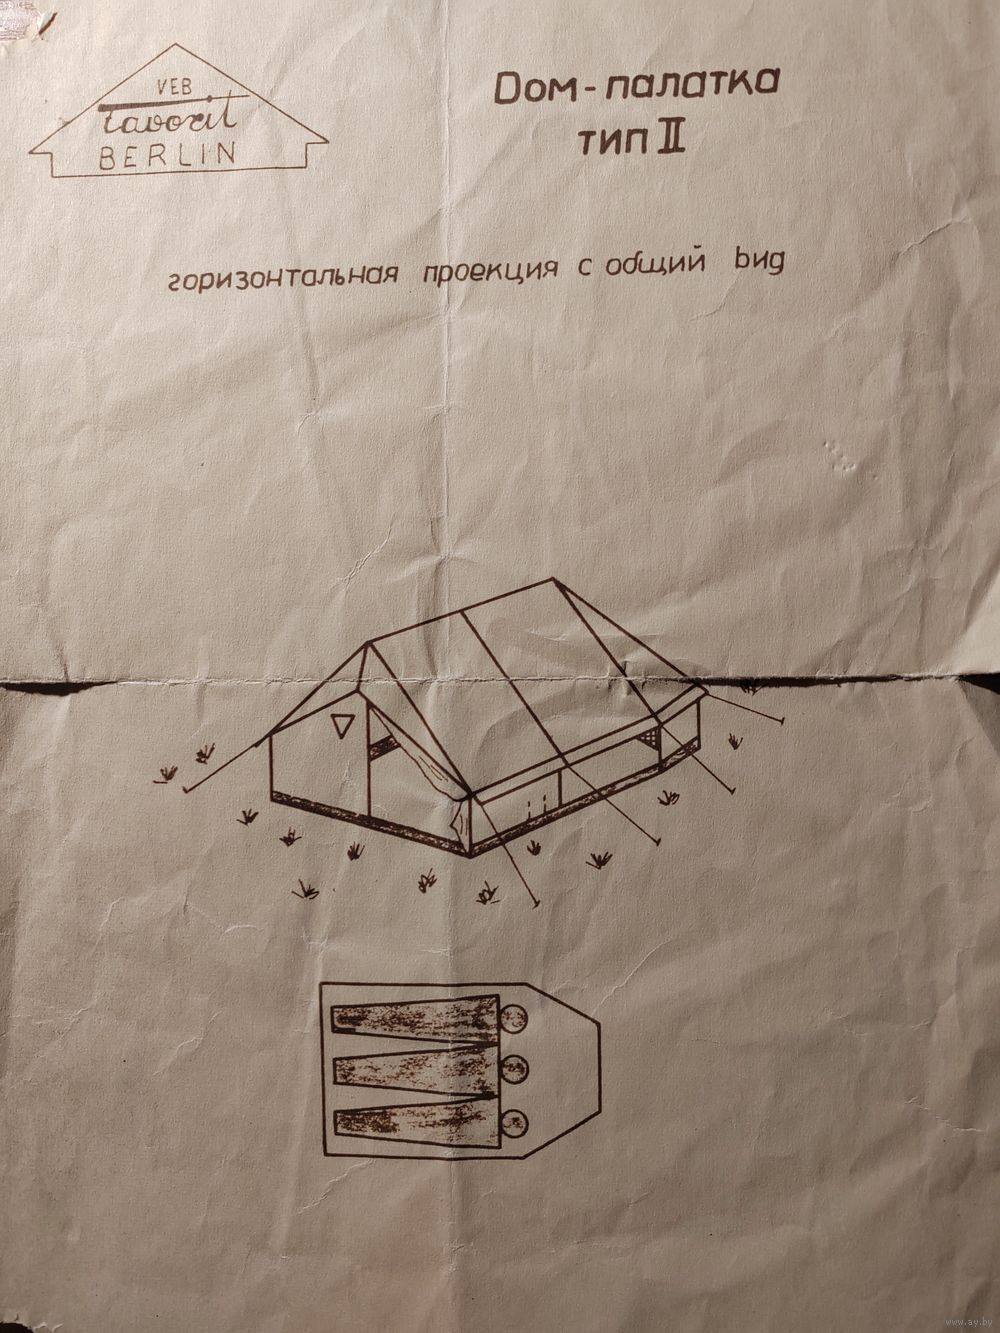 VEB
favorit
BERLIN
Dом-палатка
тип II
горизонтальная проекция с общий вид
www.ay.by